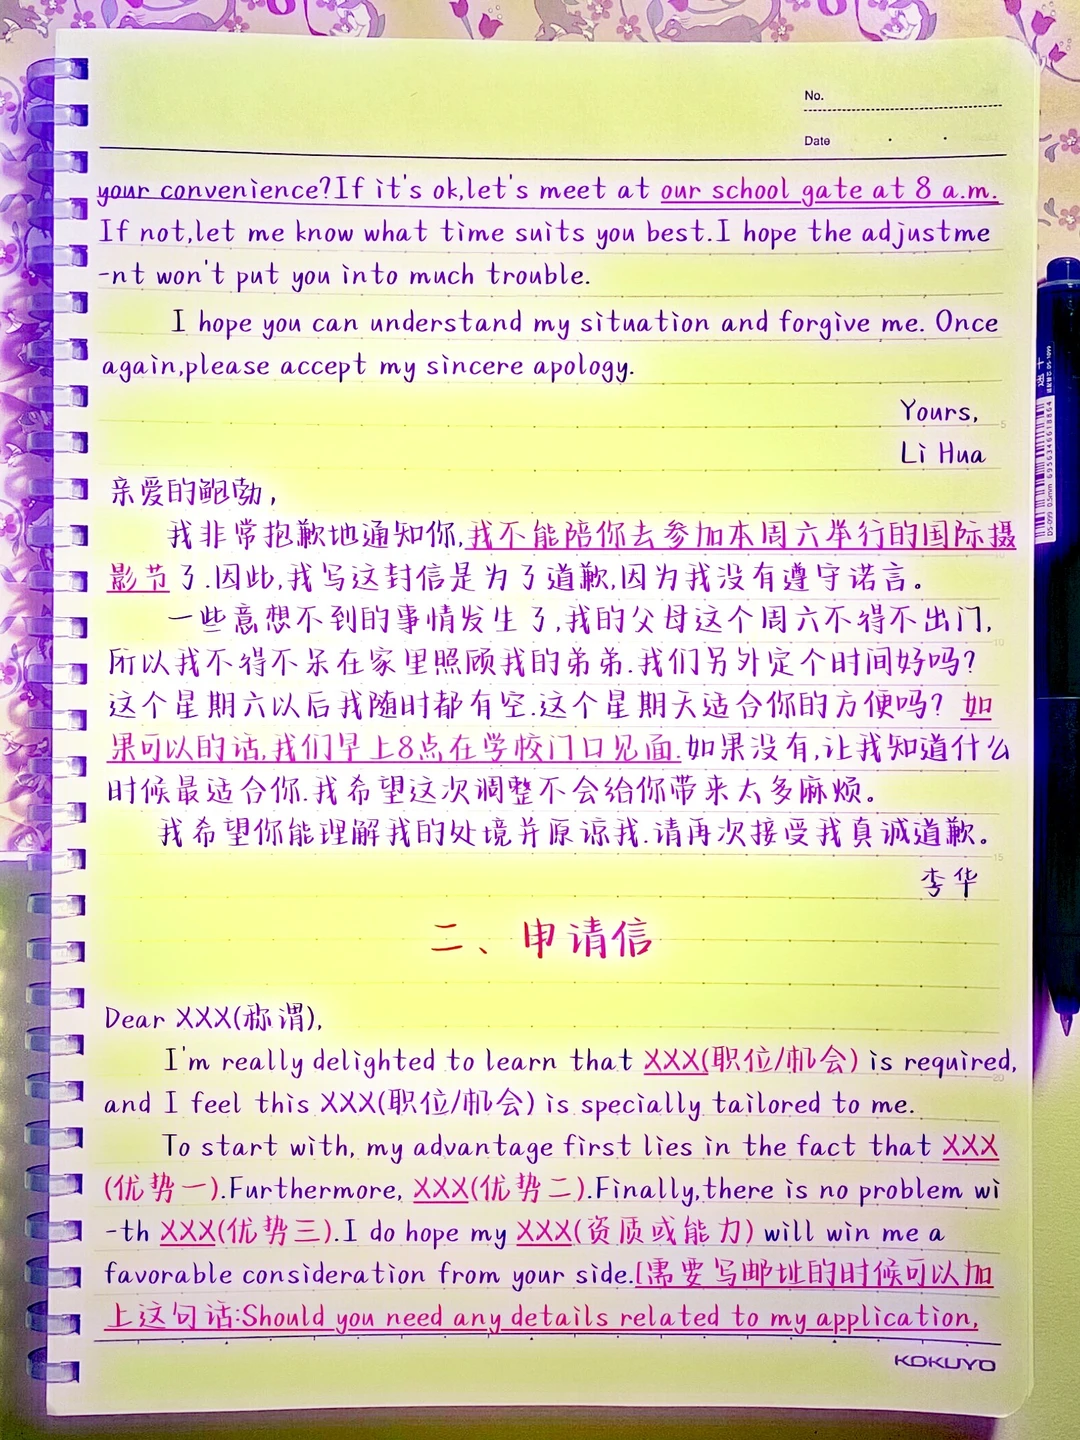 No.
Date
your convenience?If it's ok,let's meet at our school gate at 8 a.m.
If not,let me know what time suits you best.I hope the adjustme
-nt won't put you into much trouble.
I hope you can understand my situation and forgive me. Once
again,please accept my sincere apology.
Yours,
Li Hua
亲爱的鲍勃,
我非常抱歉地通知你,我不能陪你去参加本周六举行的国际摄
影节了.因此,我写这封信是为了道歉,因为我没有遵守诺言。
一些意想不到的事情发生了,我的父母这个周六不得不出门,
所以我不得不呆在家里照顾我的弟弟.我们另外定个时间好吗?
这个星期六以后我随时都有空.这个星期天适合你的方便吗? 如
果可以的话,我们早上8点在学校门口见面.如果没有,让我知道什么
时候最适合你.我希望这次调整不会给你带来太多麻烦。
我希望你能理解我的处境并原谅我.请再次接受我真诚道歉。
李华
二、申请信
Dear XXX(称谓),
I'm really delighted to learn that XXX(职位/机会) is required,
and I feel this XXX(职位/机会) is specially tailored to me.
To start with, my advantage first lies in the fact that XXX
(优势一).Furthermore, XXX(优势二).Finally,there is no problem wi
-th XXX(优势三).I do hope my XXX(资质或能力) will win me a
favorable consideration from your side.[需要写邮址的时候可以加
上这句话:Should you need any details related to my application,
KOKUYO